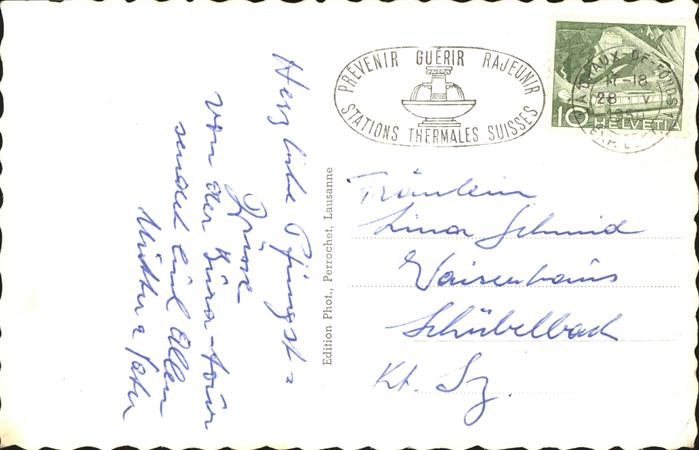 Herzliche Pfingst=
Grüsse
von der Jura-tour
sendet Euch Allen
Mutter & Vater
Edition Phot., Perrochet, Lausanne
PRÉVENIR GUÉRIR RAJEUNIR
STATIONS THERMALES SUISSES
LA CHAUX-DE-FONDS
-18
28 V
10 HELVETIA
Fräulein
Lina Schmid
Waisenhaus
Schübelbach
Kt. Sz.